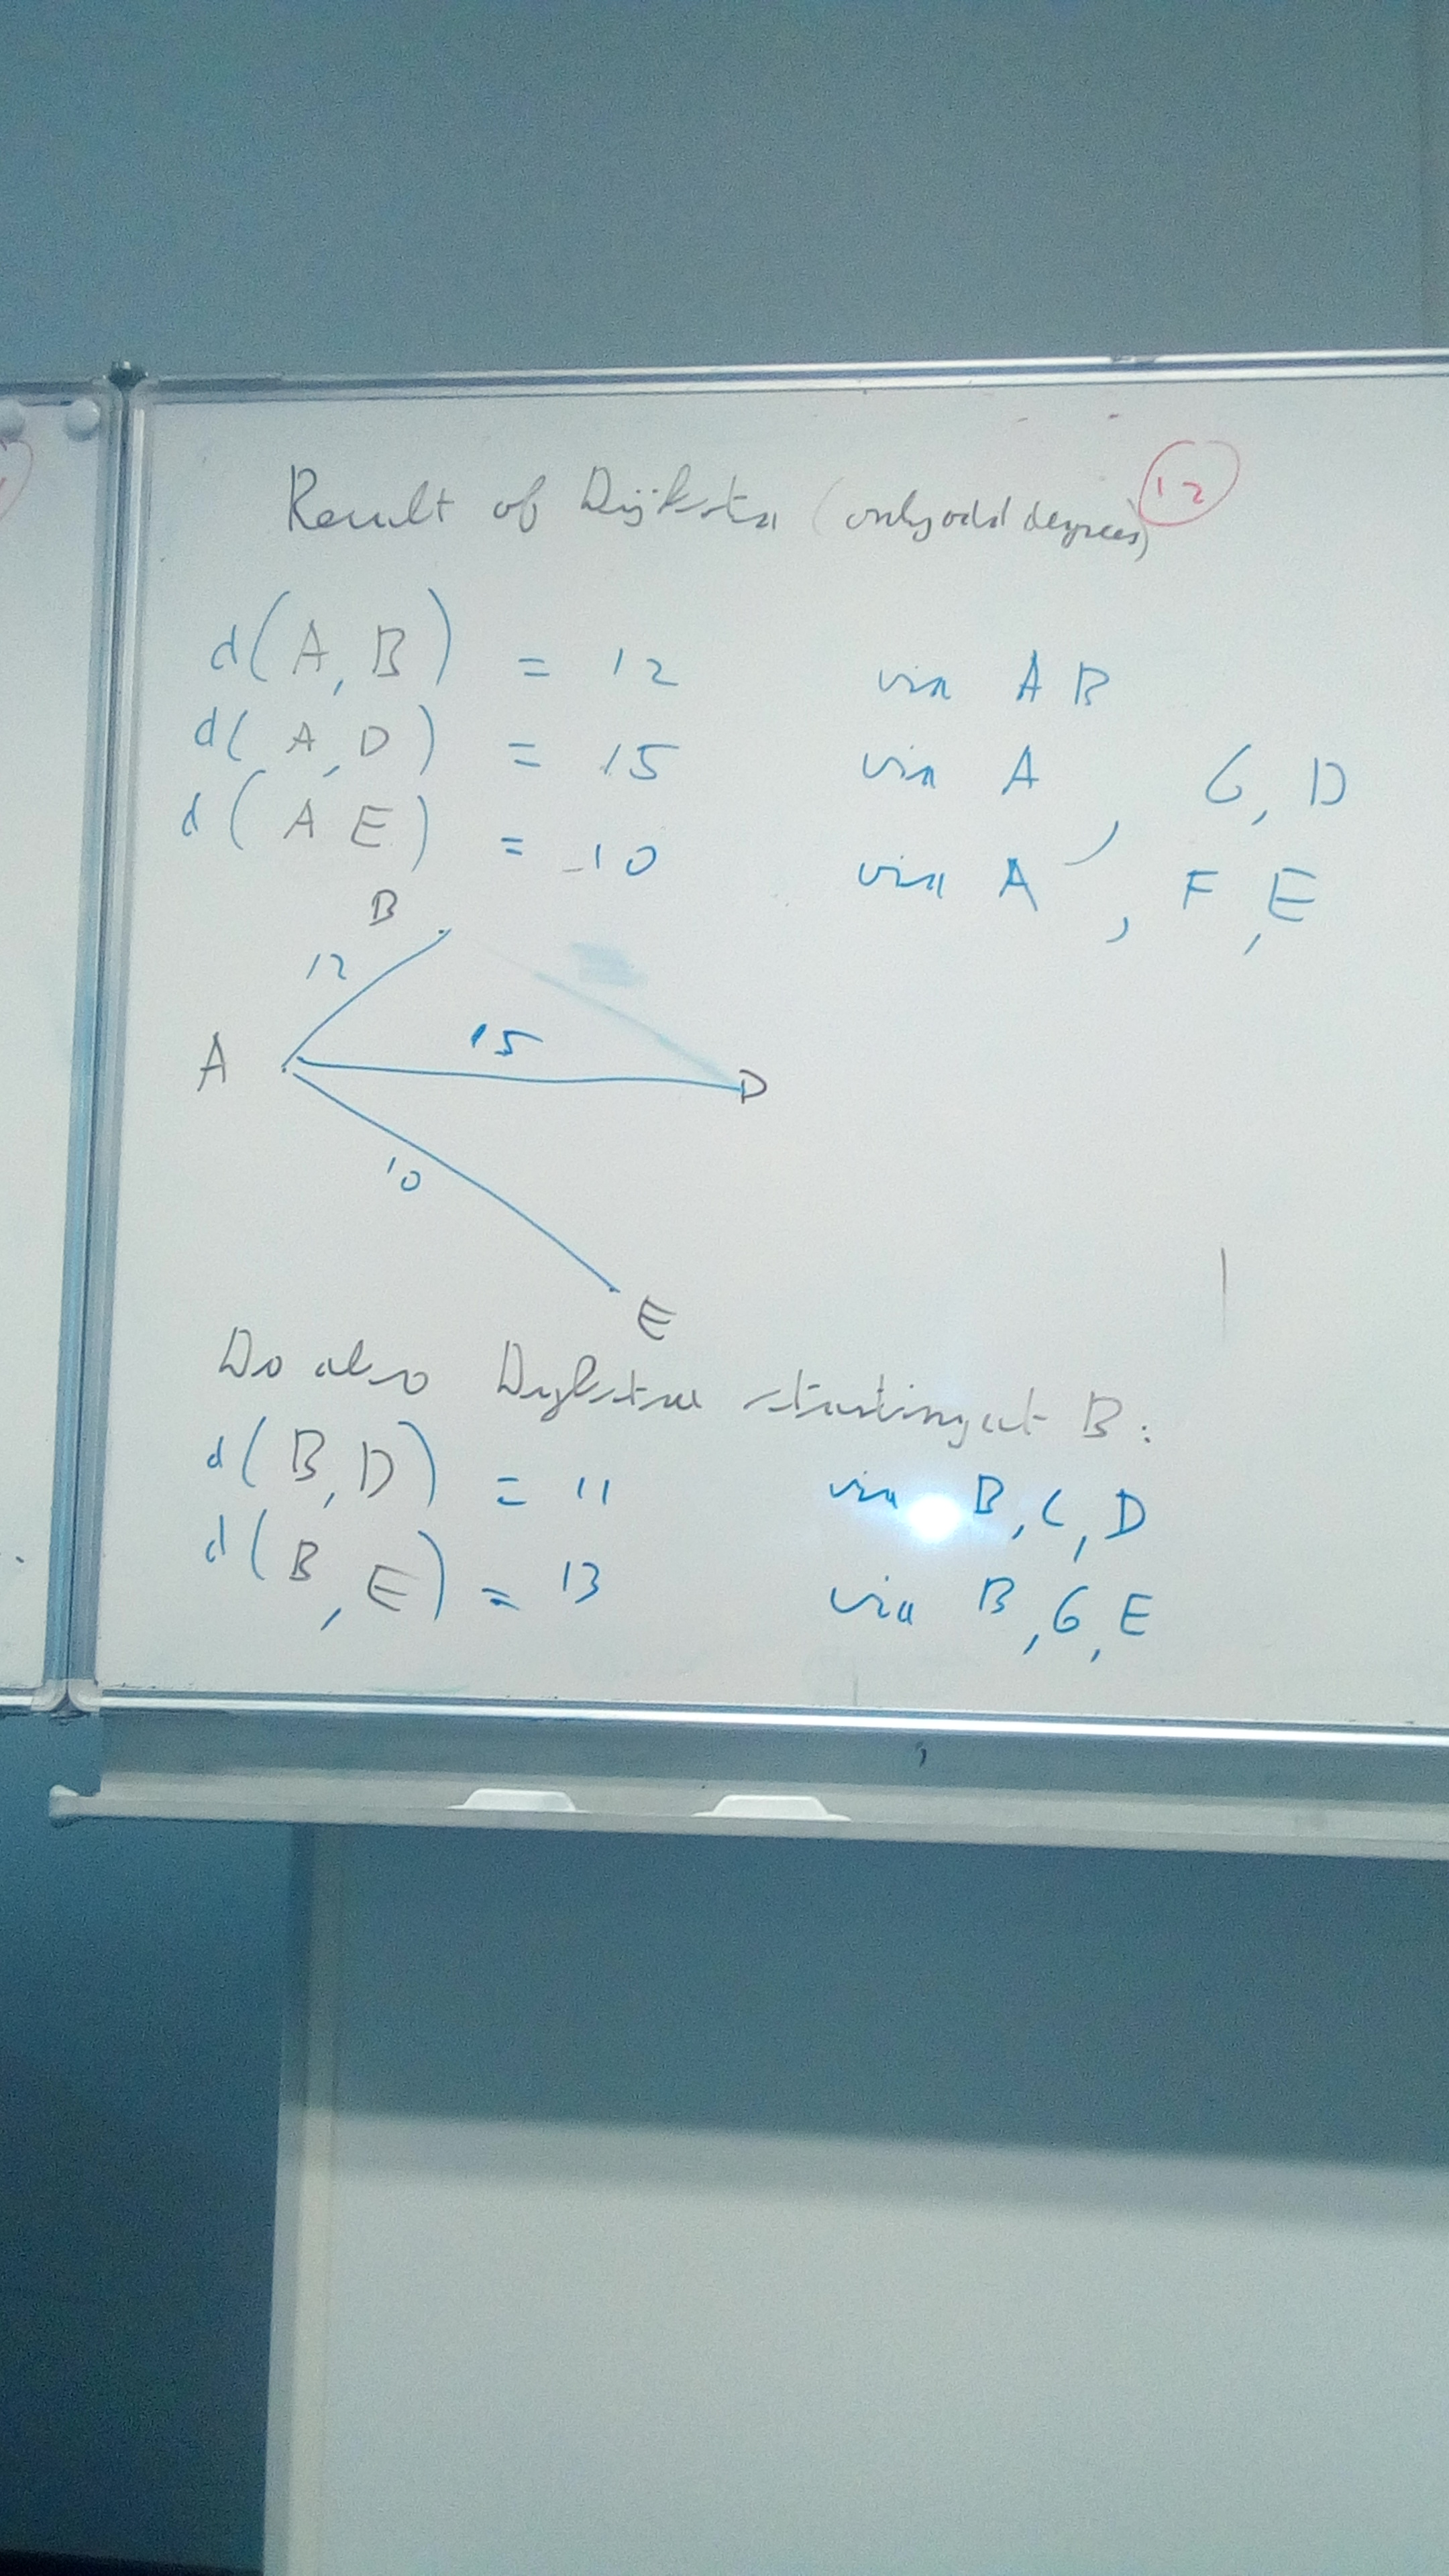 Result of Dijkstra (only odd degrees) 12
d(A, B) = 12 via A B
d(A, D) = 15 via A, G, D
d(A E) = 10 via A, F, E
B
12
15
A
D
10
E
Do also Dijkstra starting at B:
d(B, D) = 11 via B, C, D
d(B, E) = 13 via B, G, E